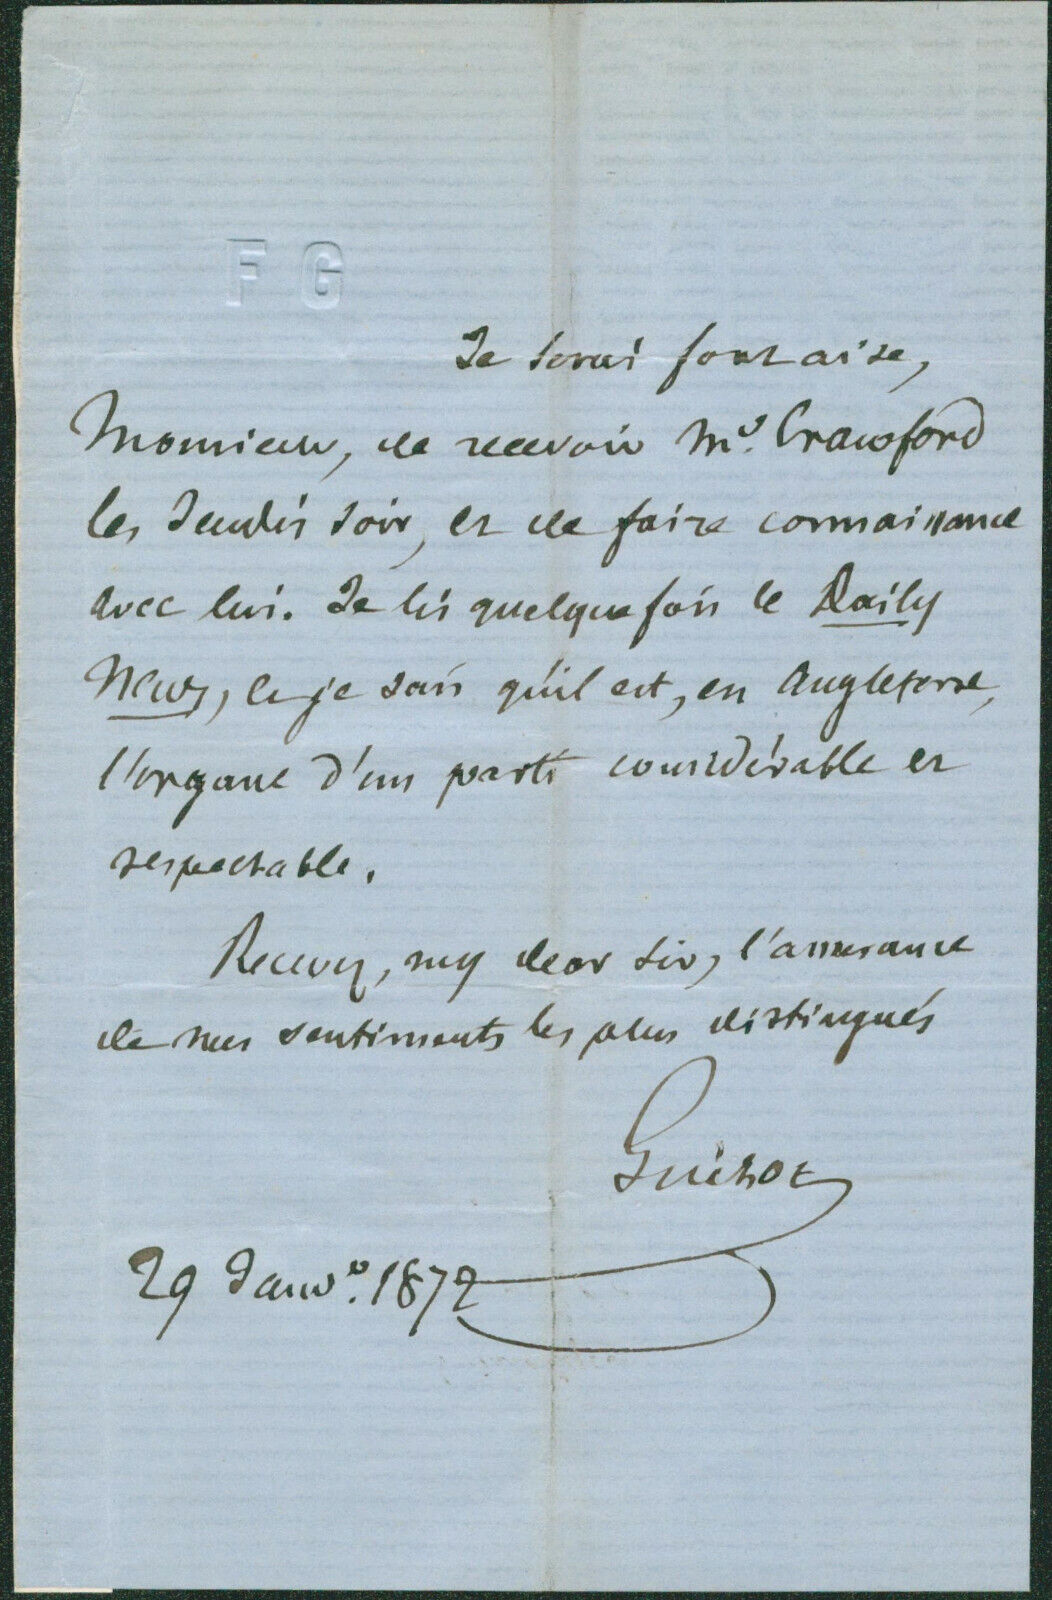 F G
Je serai fort aise,
Monsieur, de recevoir Mr. Crawford
les Jeudis soir, et de faire connaissance
avec lui. Je lis quelquefois le Daily
News, et je sais qu'il est, en Angleterre,
l'organe d'un parti considérable et
respectable.
Recevez, my dear sir, l'assurance
de mes sentiments les plus distingués
Guizot
29 Janvr. 1872